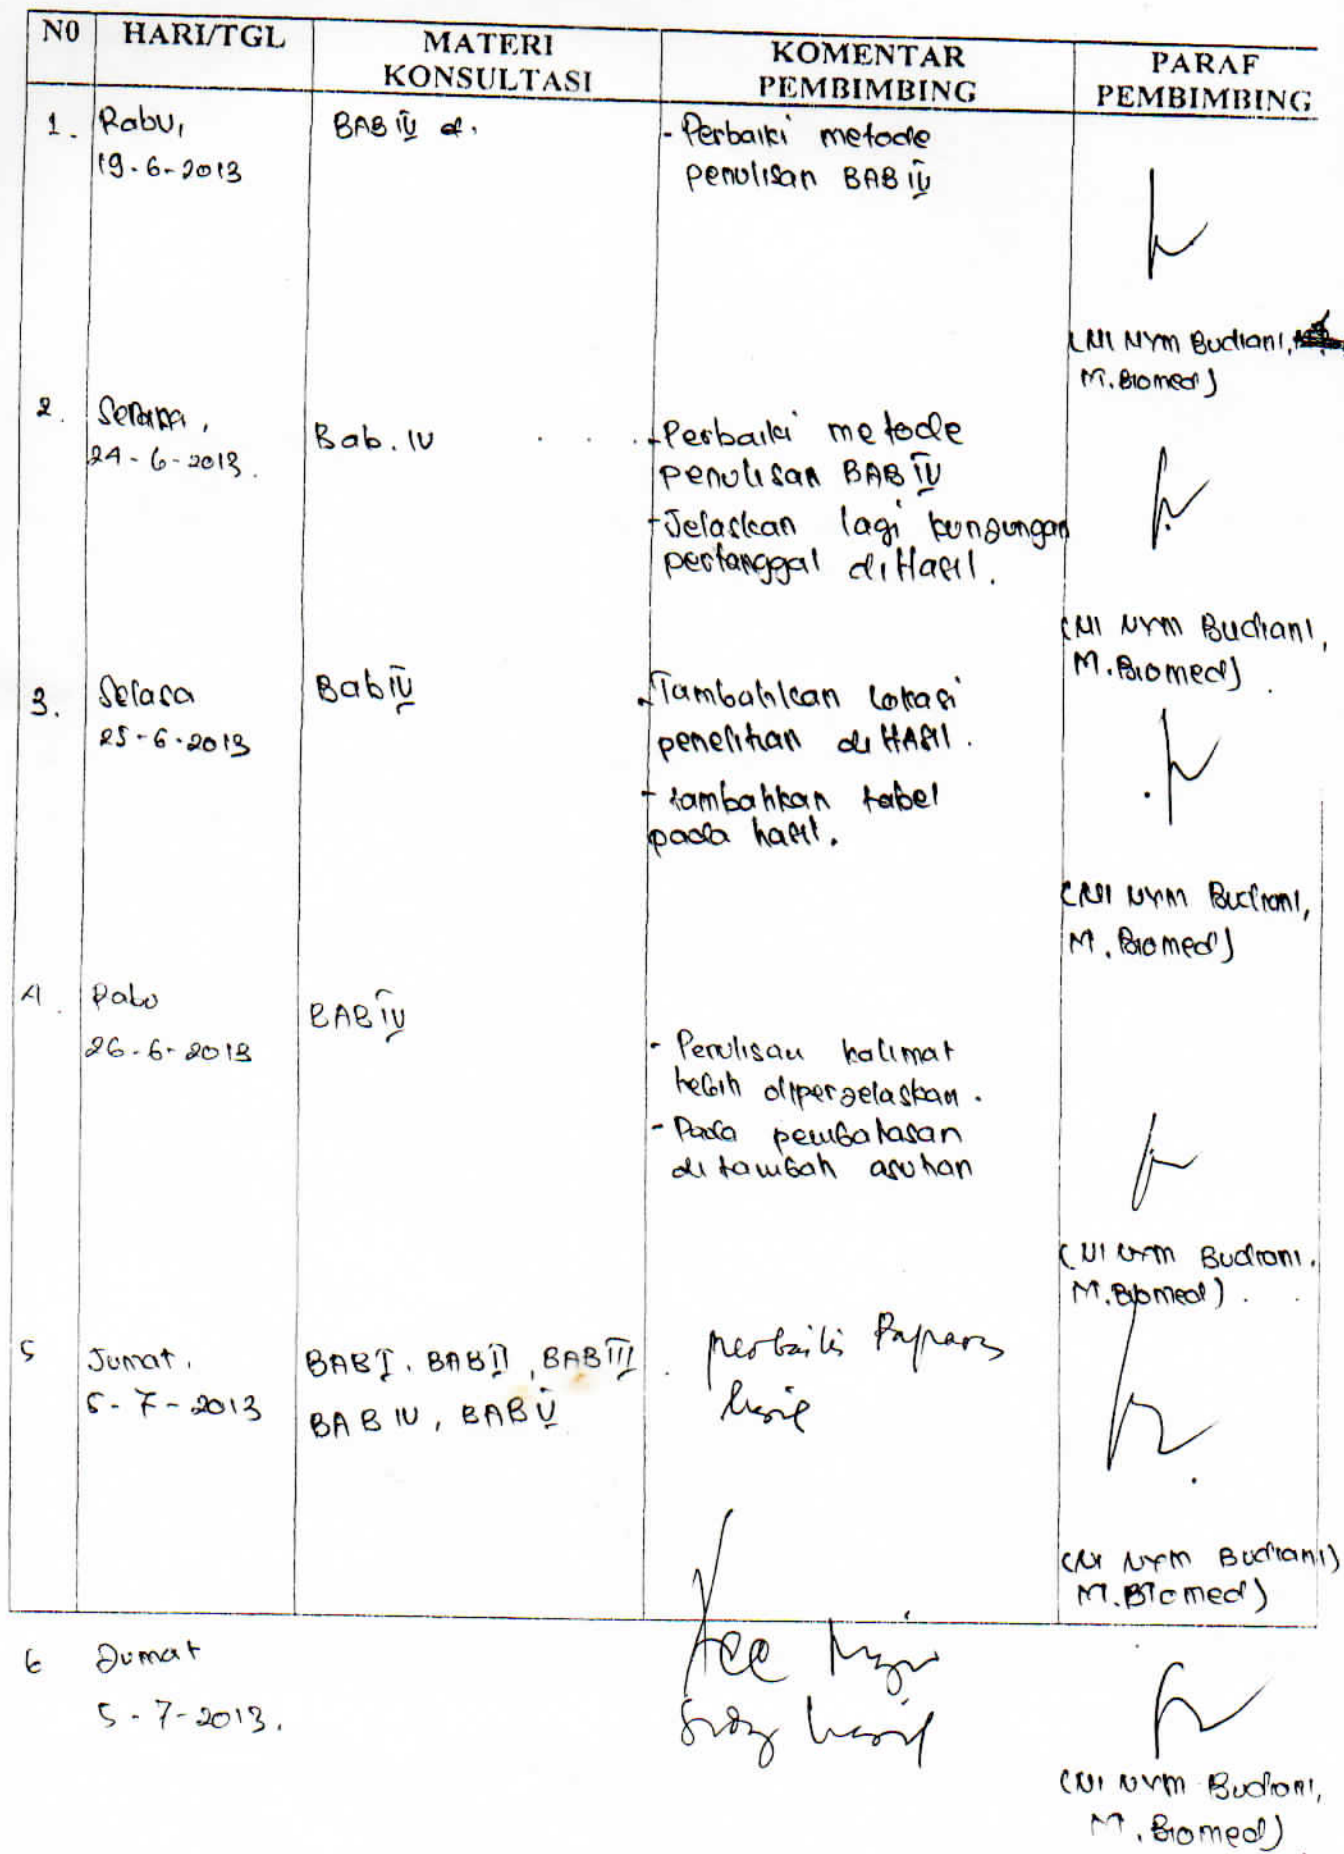 NO HARI/TGL MATERI KONSULTASI KOMENTAR PEMBIMBING PARAF PEMBIMBING
1. Rabu,
19-6-2013
BAB IV
- Perbaiki metode
penulisan BAB IV
(NI NYM Budiani,
M.Biomed)
2.
24-6-2013.
Bab. IV
- Perbaiki metode
penulisan BAB IV
- Jelaskan lagi kunjungan
pertanggal di Hasil.
(NI NYM Budiani,
M.Biomed)
3. Selasa
25-6-2013
Bab IV
- Tambahkan lokasi
penelitian di HASIL.
- tambahkan tabel
pada hasil.
(NI NYM Budiani,
M.Biomed)
4. Rabu
26-6-2013
BAB IV
- Penulisan kalimat
lebih diperjelaskan.
- Pada pembahasan
di tambah asuhan
(NI NYM Budiani,
M.Biomed).
5 Jumat,
5-7-2013
BAB I, BAB II, BAB III
BAB IV, BAB V
perbaiki Paparan
hasil
(NI NYM Budiani)
M.Biomed)
6 Jumat
5-7-2013.
Acc
hasil
(NI NYM Budiani,
M.Biomed)